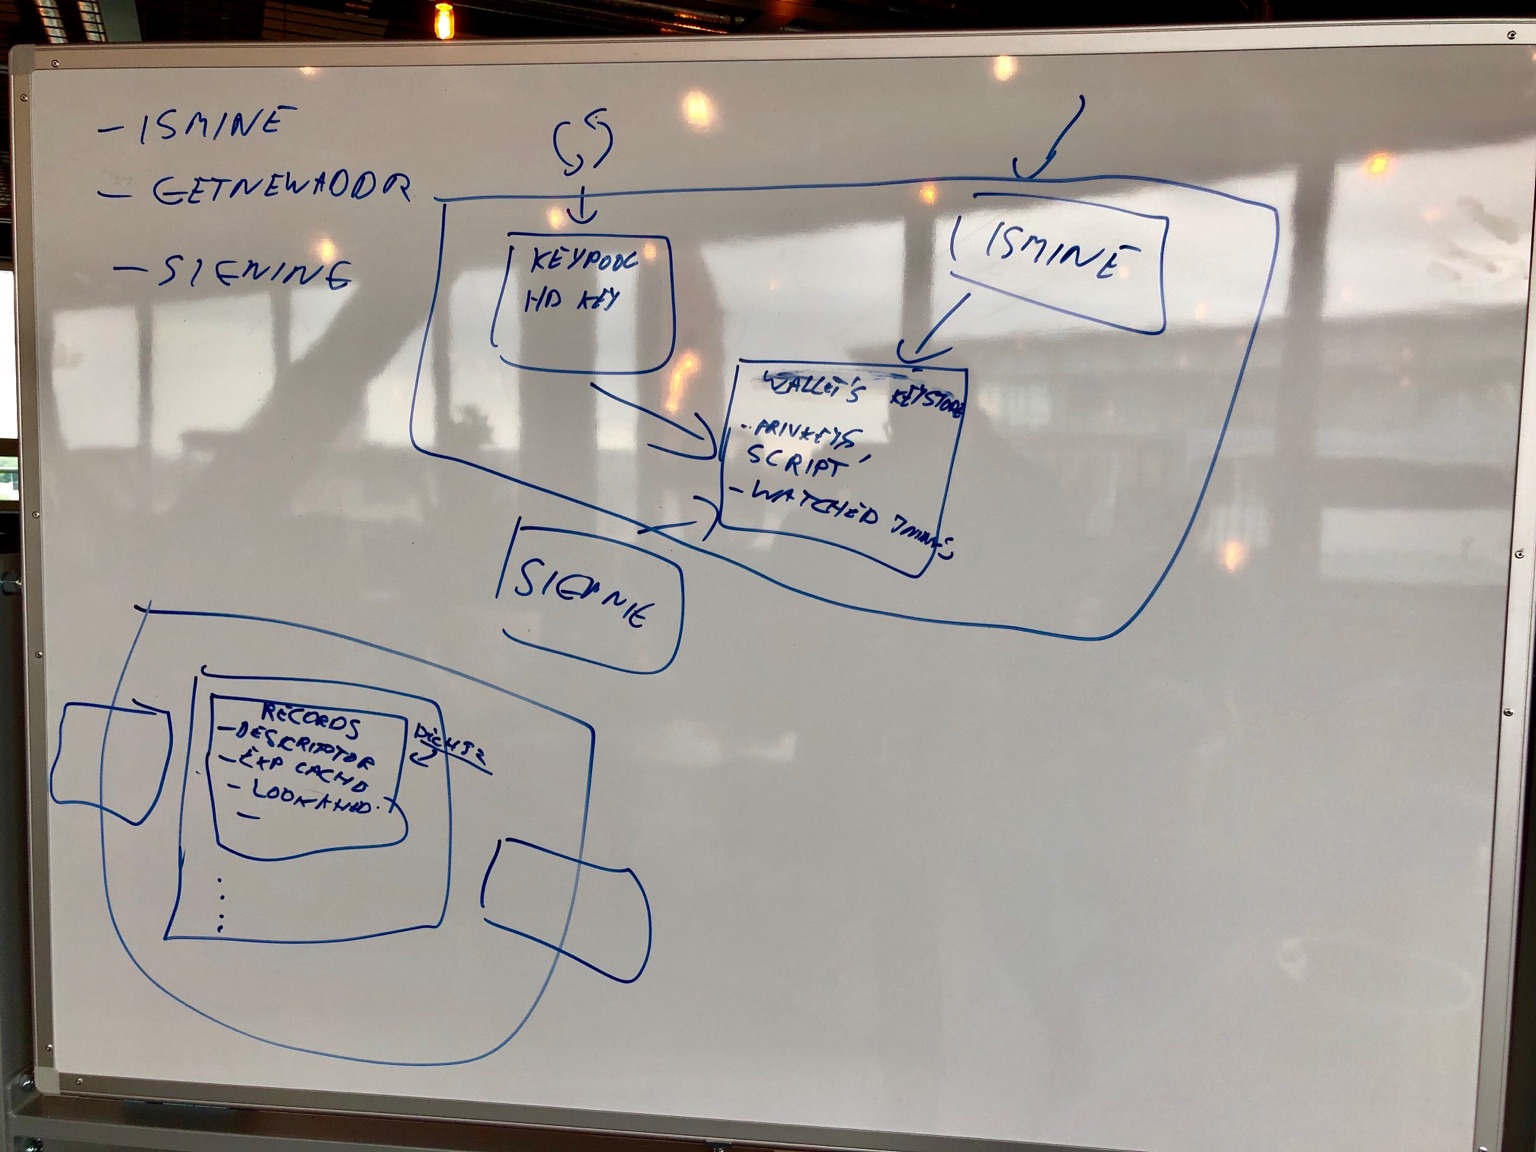 - ISMINE
- GETNEWADDR
- SIGNING
KEYPOOL
HD KEY
ISMINE
WALLET'S KEYSTORE
- PRIVKEYS,
SCRIPT
- WATCHED
SIGNING
RECORDS
- DESKRIPTOR
- EXP CACHE
- LOOKAHED
-